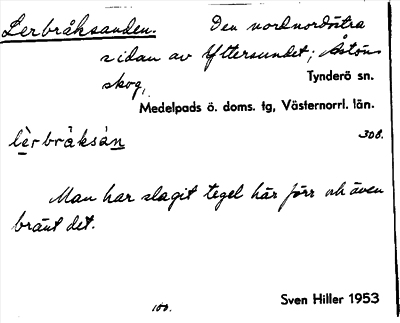 Lerbråksanden. Den nordnordöstra
sidan av Yttersundet; Åstöns
skog,
Tynderö sn.
Medelpads ö. doms. tg, Västernorrl. län.
lèrbråksán
308.
Man har slagit tegel här förr och även
bränt det.
100.
Sven Hiller 1953